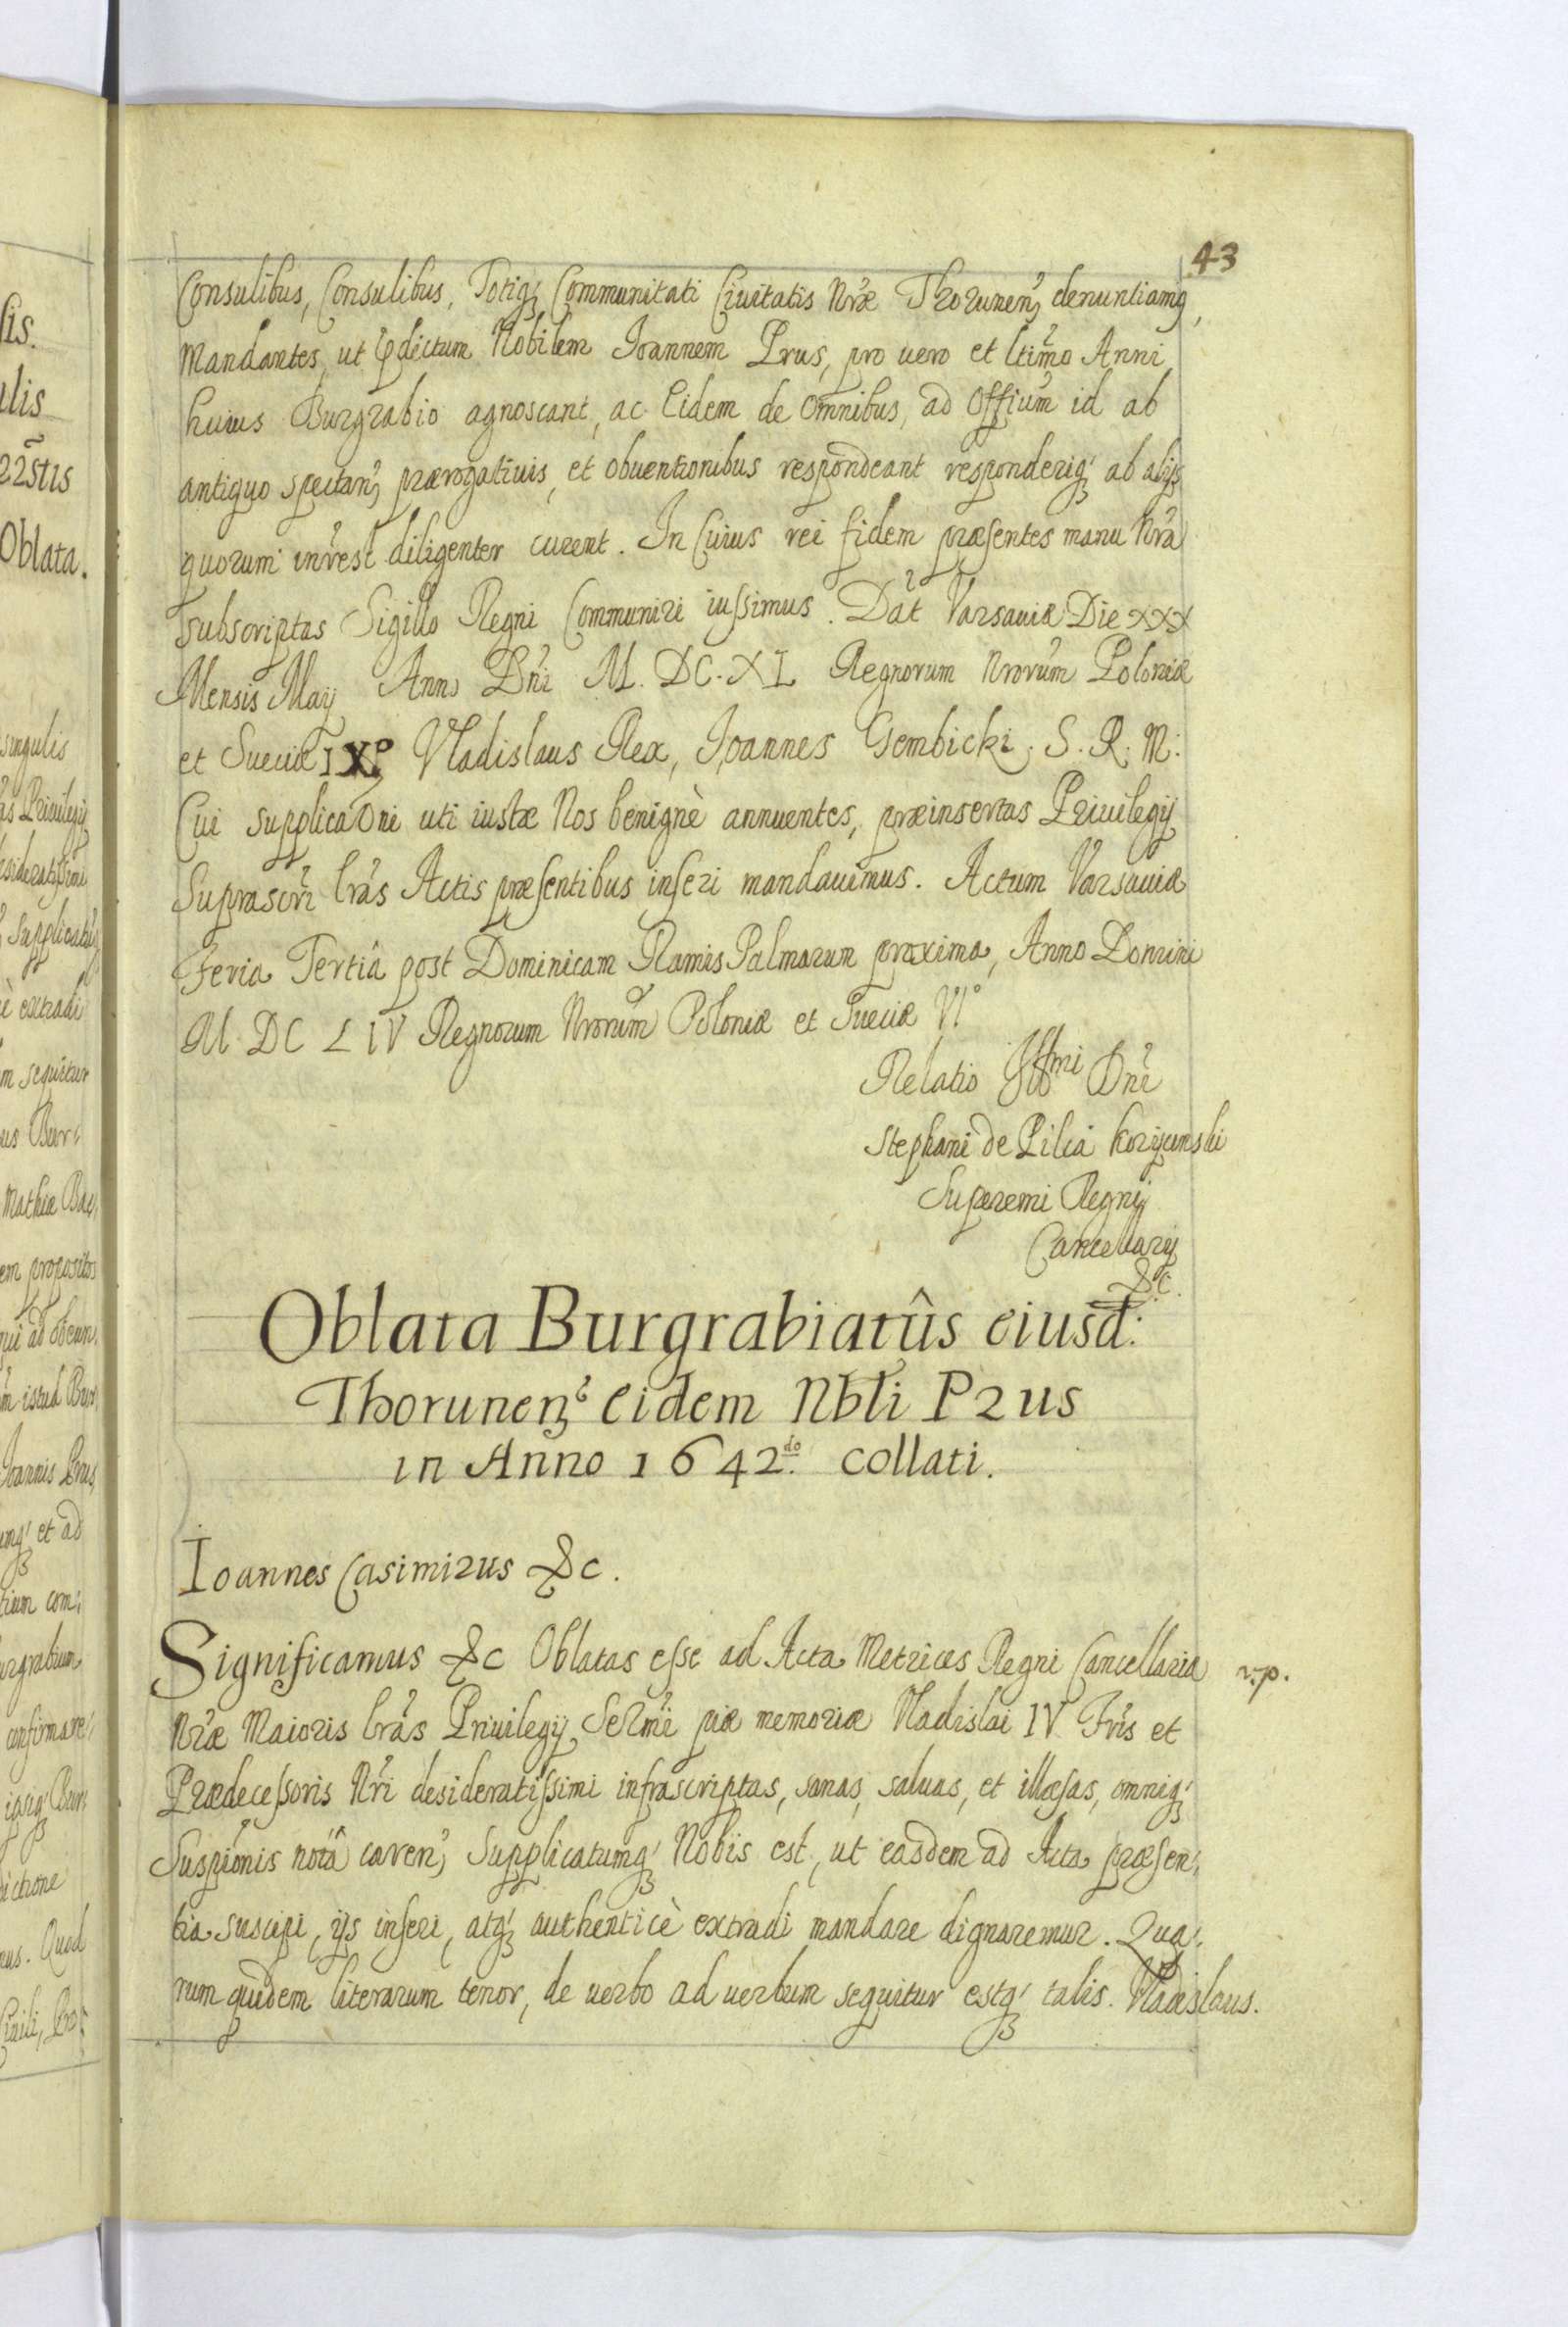 43
Consulibus, Consulibus, Totiq; Communitati Ciuitatis Nræ Thorunen; denuntiamq,
Mandantes, ut pdictum Nobilem Ioannem Prus, pro uero et Ltimo Anni
huius Burgrabio agnoscant, ac Eidem de omnibus, ad Offium id ab
antiquo spectan; prærogatiuis, et obuentionibus respondeant responderiq; ab alijs
quorum inrest diligenter curent. In Cuius rei fidem præsentes manu Nrâ
subscriptas Sigillo Regni Communiri iussimus. Dat Varsauiæ Die XXX
Mensis Maij Anno Dni M. DC. XL Regnorum Nrorum Poloniæ
et Sueciæ IXo Vladislaus Rex, Ioannes Gembicki. S. R. M:
Cui supplicaõni uti iustæ Nos benignè annuentes, præinsertas Priuilegij
Suprascri lras Actis præsentibus inseri mandauimus. Actum Varsauiæ
Feria Tertiâ post Dominicam Ramis Palmarum proxima, Anno Domini
M. DC LIV Regnorum Nrorum Poloniæ et Sueciæ VIo
Relatio Illmi Dni
Stephani de Pilca Korycinski
Supremi Regni
Cancellarij
&c.
Oblata Burgrabiatûs eiusd:
Thorunen; Eidem Nbli Prus
in Anno 1642do. collati.
Ioannes Casimirus &c.
Significamus &c Oblatas esse ad Acta Metrices Regni Cancellariæ r.p.
Nræ Maioris lras Priuilegij Sermi piæ memoriæ Vladislai IV Fris et
Prædecessoris Nri desideratissimi infrascriptas, sanas, saluas, et illæsas, omniq;
Suspionis notâ caren; Supplicatumq; Nobis est, ut easdem ad Acta præsen:
tia suscipi, ijs inseri, atq; authenticè extradi mandare dignaremur. Qua:
rum quidem literarum tenor, de uerbo ad uerbum sequitur estq; talis. Vladislaus.